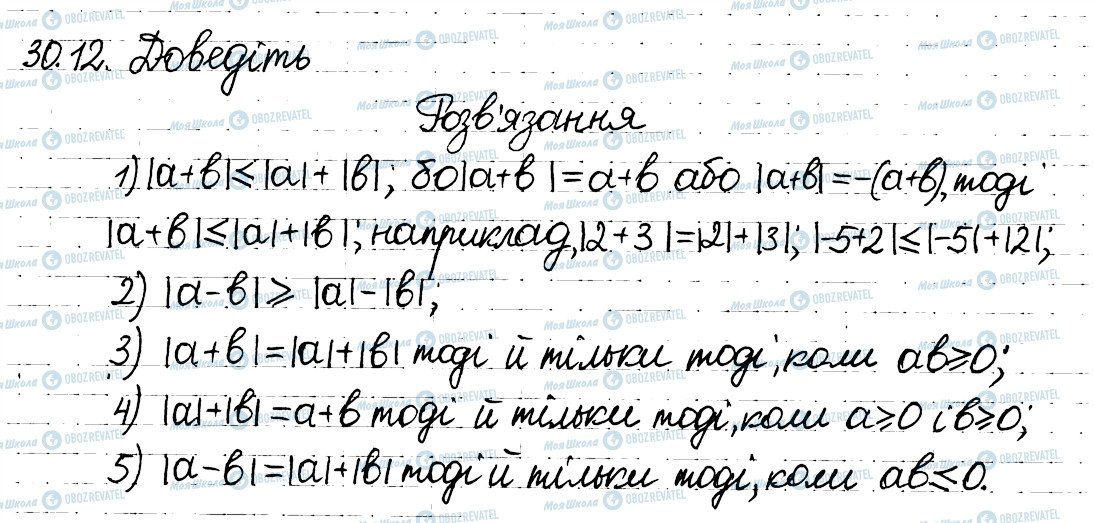 30.12. Доведіть
Розв'язання
1) |a+b|≤|a|+|b|; бо |a+b|=a+b або |a+b|=-(a+b), тоді
|a+b|≤|a|+|b|; наприклад, |2+3|=|2|+|3|; |-5+2|≤|-5|+|2|;
2) |a-b|≥|a|-|b|;
3) |a+b|=|a|+|b| тоді й тільки тоді, коли ab≥0;
4) |a|+|b|=a+b тоді й тільки тоді, коли a≥0 і b≥0;
5) |a-b|=|a|+|b| тоді й тільки тоді, коли ab≤0.